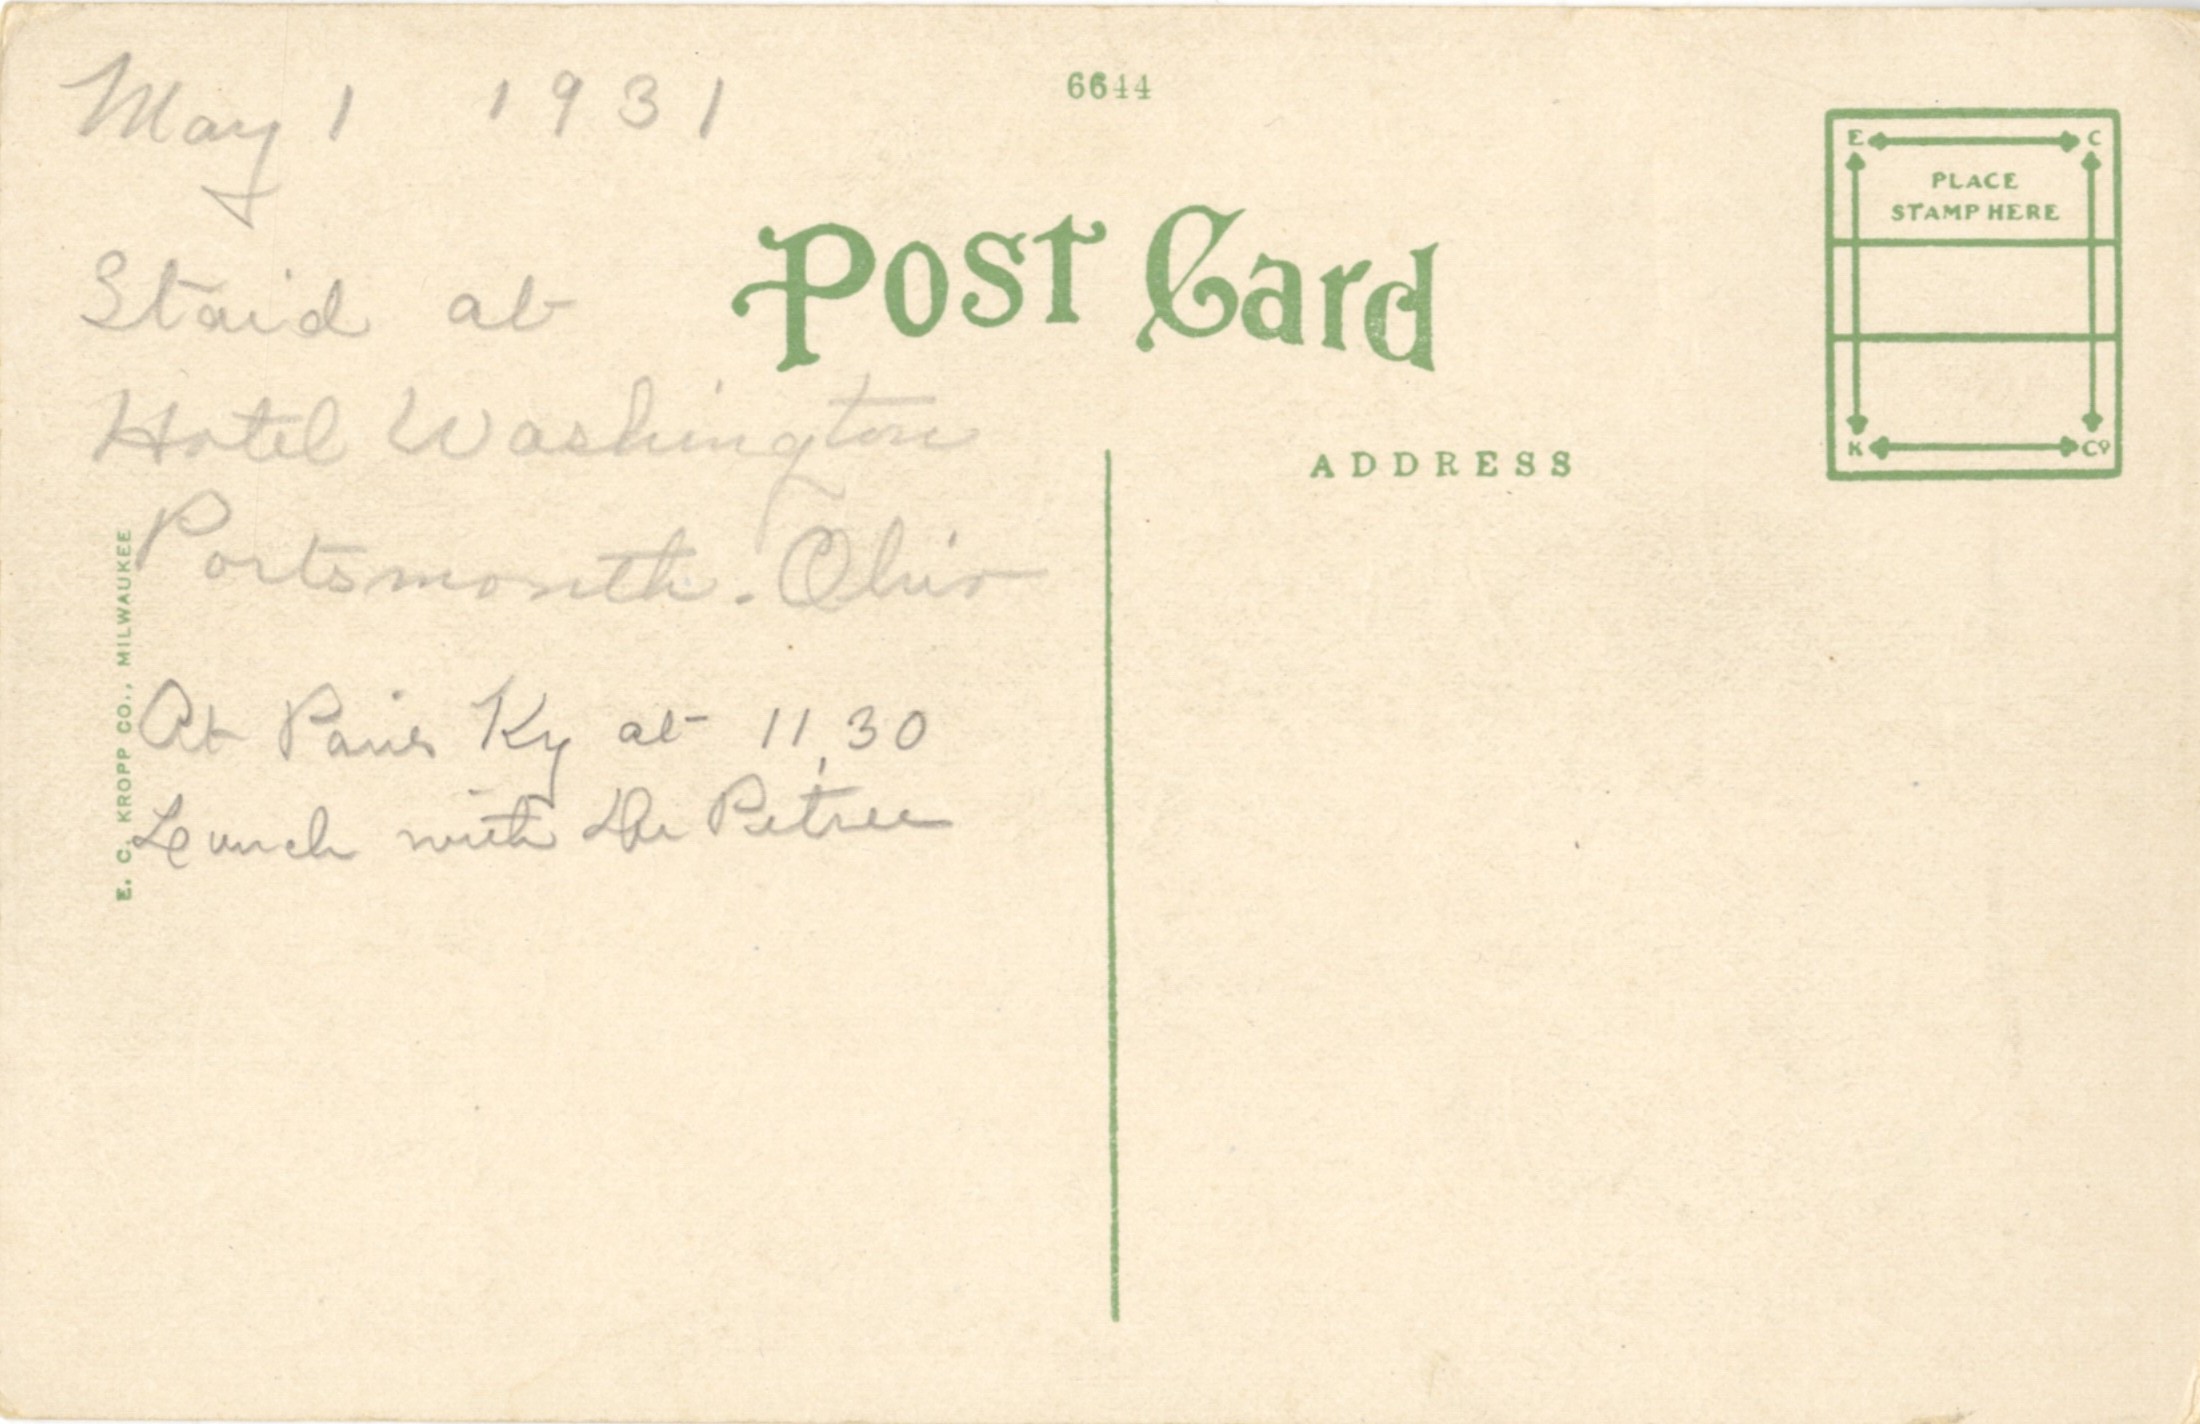 May 1 1931
6644
E C
PLACE
STAMP HERE
K Cº
Post Card
ADDRESS
Staid at
Hotel Washington
Portsmouth. Ohio
At Paris Ky at 11,30
Lunch with Dr Petree
E. C. KROPP CO., MILWAUKEE